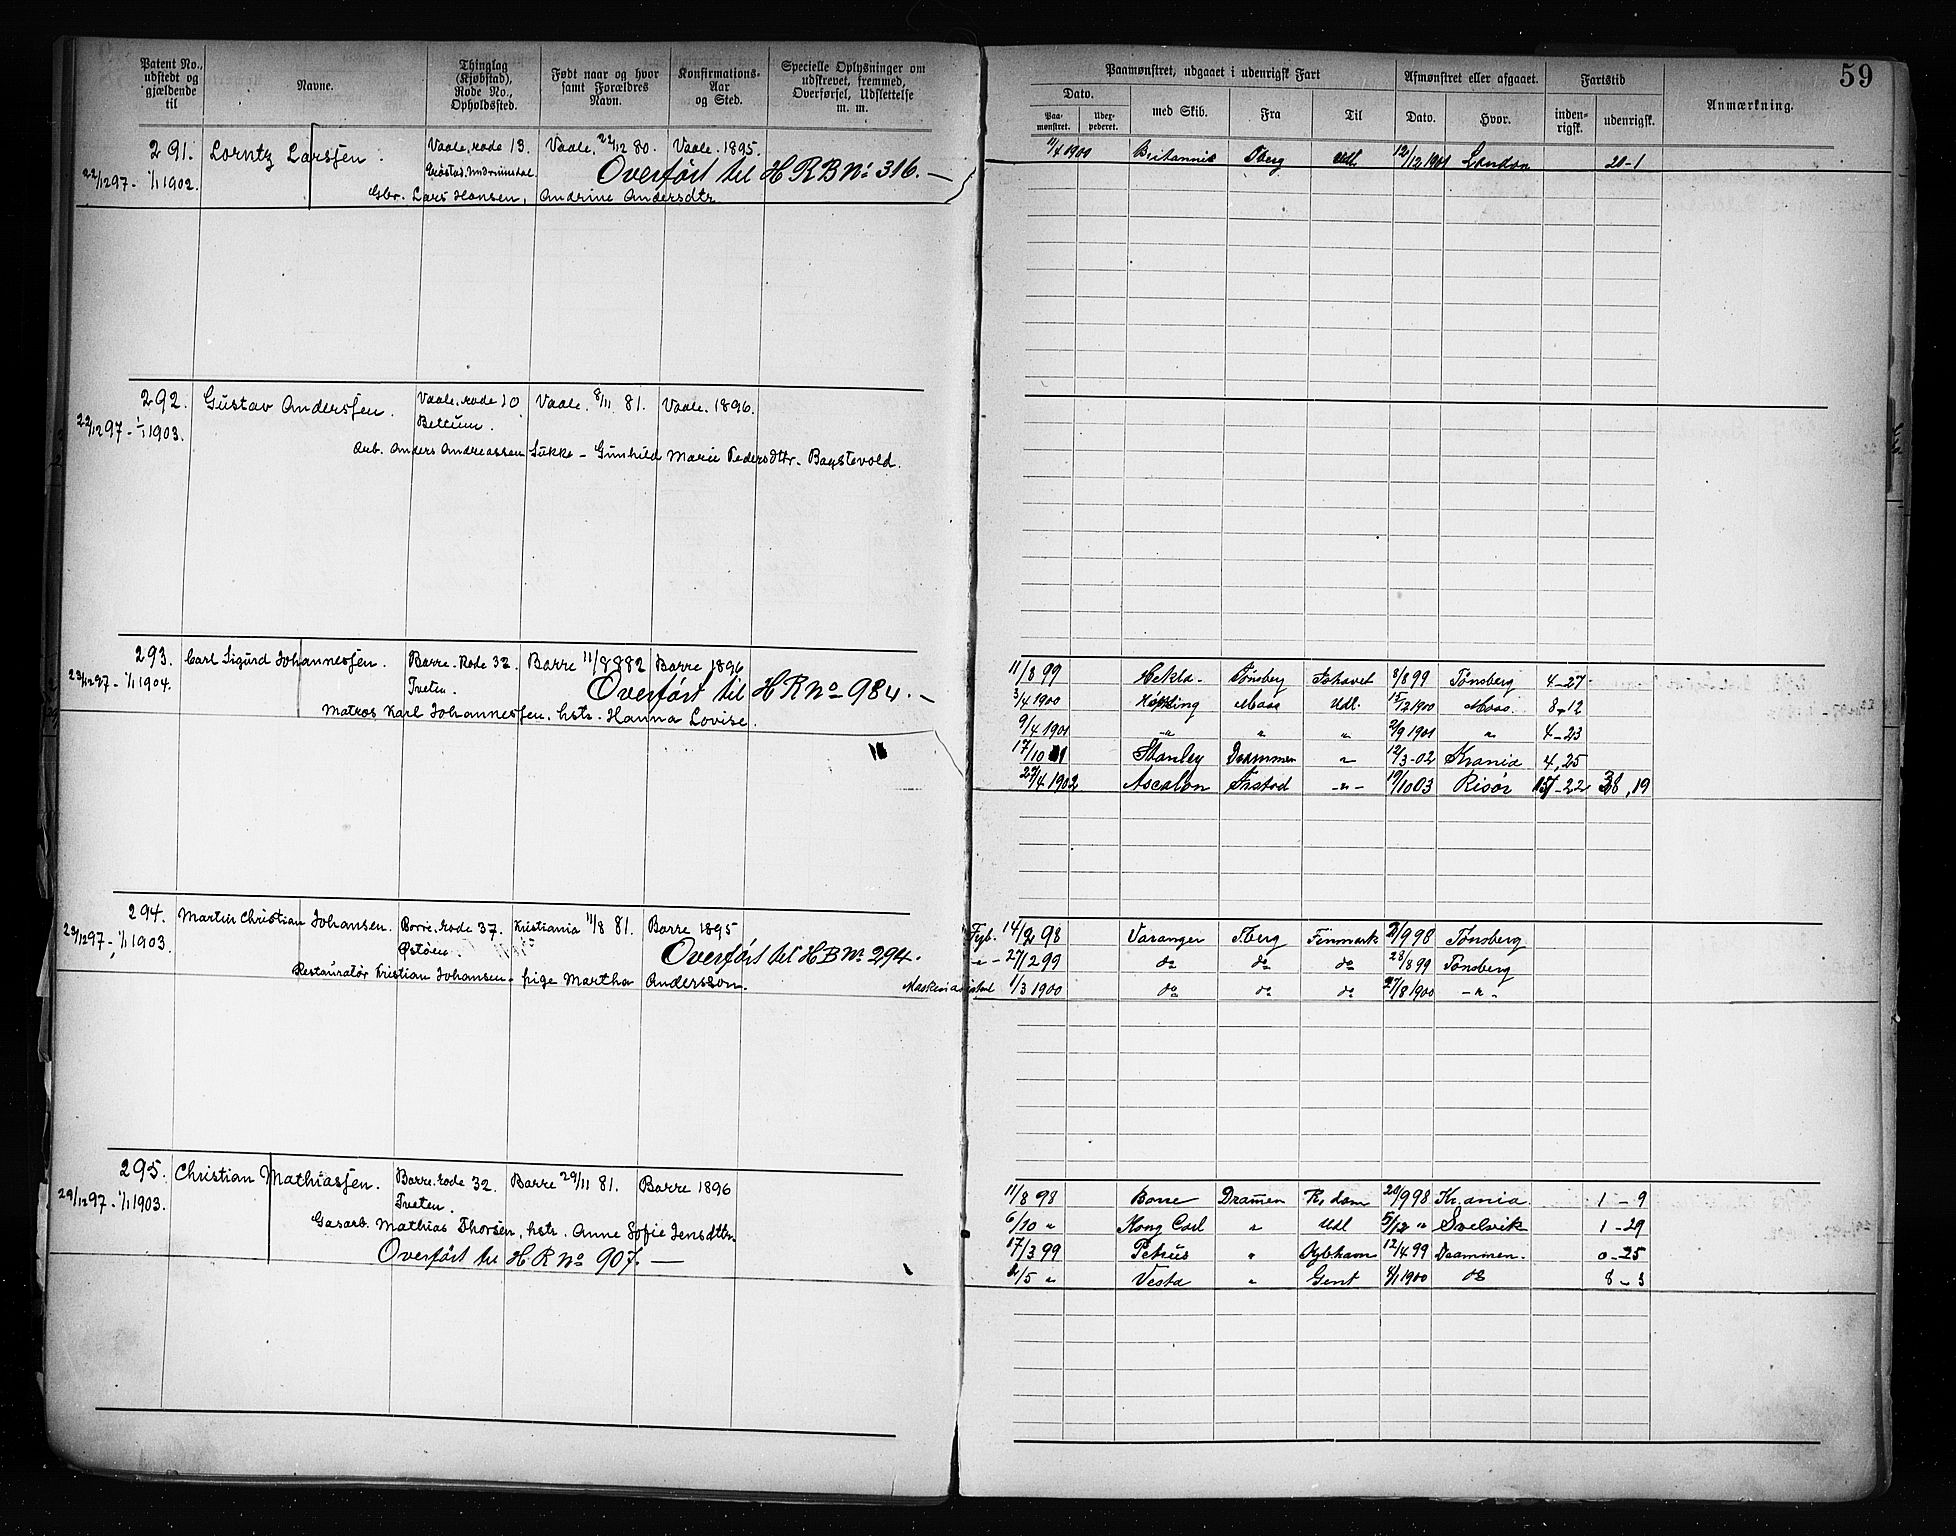 Patent No., udstedt og gjældende til
Navne.
Thinglag (Kjøbstad), Rode No., Opholdssted.
Født naar og hvor samt Forældres Navn.
Konfirmations-Aar og Sted.
Specielle Oplysninger om udskrevet, fremmed, Overførsel, Udslettelse m. m.
Paamønstret, udgaaet i udenrigsk Fart
Afmønstret eller afgaaet.
Fartstid
Anmærkning.
59
Dato.
Paa-mønstret.
med Skib.
Fra
Til
Dato.
Hvor.
inden-rigsk.
udenrigsk.
291. Lorntz Larssen. Vaale, rode 13. Vaale, 22/12 80. Vaale. 1895.
22/12 97 - 1/1 1902. Overført til HRB No 316. —
Gbr. Lars Hansen, Andrine Andersdtr
11/4 1900 Britannic Tberg Udl. 12/12 1901 London 20-1
292. Gustav Anderssen. Vaale, rode 10 Vaale. 8/11 81. Vaale. 1896.
22/12 97 - 1/1 1903.
Arb. Anders Andreassen Sukke - Gunhild Marie Pedersdttr.
293. Carl Sigurd Johannessen. Borre. Rode 32. Borre 11/8 1882 Borre 1896
23/12 97 - 1/1 1904. Tveten. Overført til HR No 984. —
Matros Karl Johannessen, hstr. Hanna Lovise.
11/8 99 Hekla - Tønsberg Ishavet 8/8 99 Tønsberg 4-27
3/4 1900 Moss Udl. 15/12 1900 Moss. 8-12
9/4 1901 " " " 2/9 1901 " 4-23
17/10 01 Stanley Drammen " 12/3-02 Krania 4,25
27/4 1902 Ascalon Frstad -"- 19/10 03 Risør 22 38,19
294. Martin Christian Johansen. Borre, rode 37. Kristiania 11/8 81. Borre 1895
23/12 97 - 1/1 1903. Østøen. Overført til HB No 294.
Restauratør Kristian Johansen - pige Martha Anderson.
Fyb. 14/2 98 Varanger T.berg Finmark 2/9 98 Tønsberg
-"- 27/2 99 do do do 28/8 99 Tønsberg
1/3 1900 do do do 27/8 1900 -"-
295. Christian Mathiassen. Borre. rode 32. Borre 29/11 81. Borre 1896
29/12 97 - 1/1 1903. Tveten.
Gasarb. Mathias Thorsen, hstr. Anne Sofie Jensdttr.
Overført til HR No 907. —
11/8 98 Borre Dramen R,dam 20/9 98 Kr.ania 1 - 9
6/10 " Kong Carl " Udl 5/12 " Svelvik 1 - 29
17/3 99 Petrus " Kjbhavn 12/4 99 Drammen. 0 - 25
2/5 " Vesta " Gent 4/1 1900 do 8 - 3